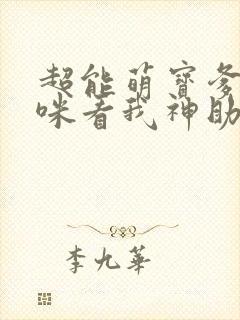 超能萌寶爹
咪看我神助
李九華